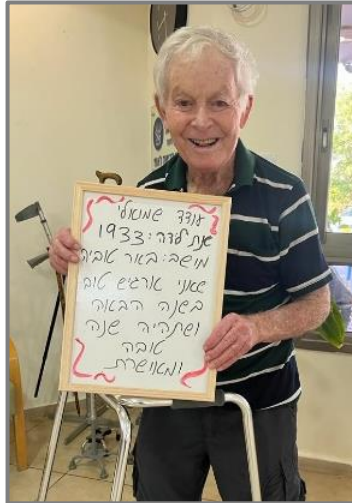 עודד שמואלי
שנת לדה: 1933
מושב: באר טוביה
שאני ארגיש טוב
בשנה הבאה
ושתהיה שנה
טובה
ומאושרת